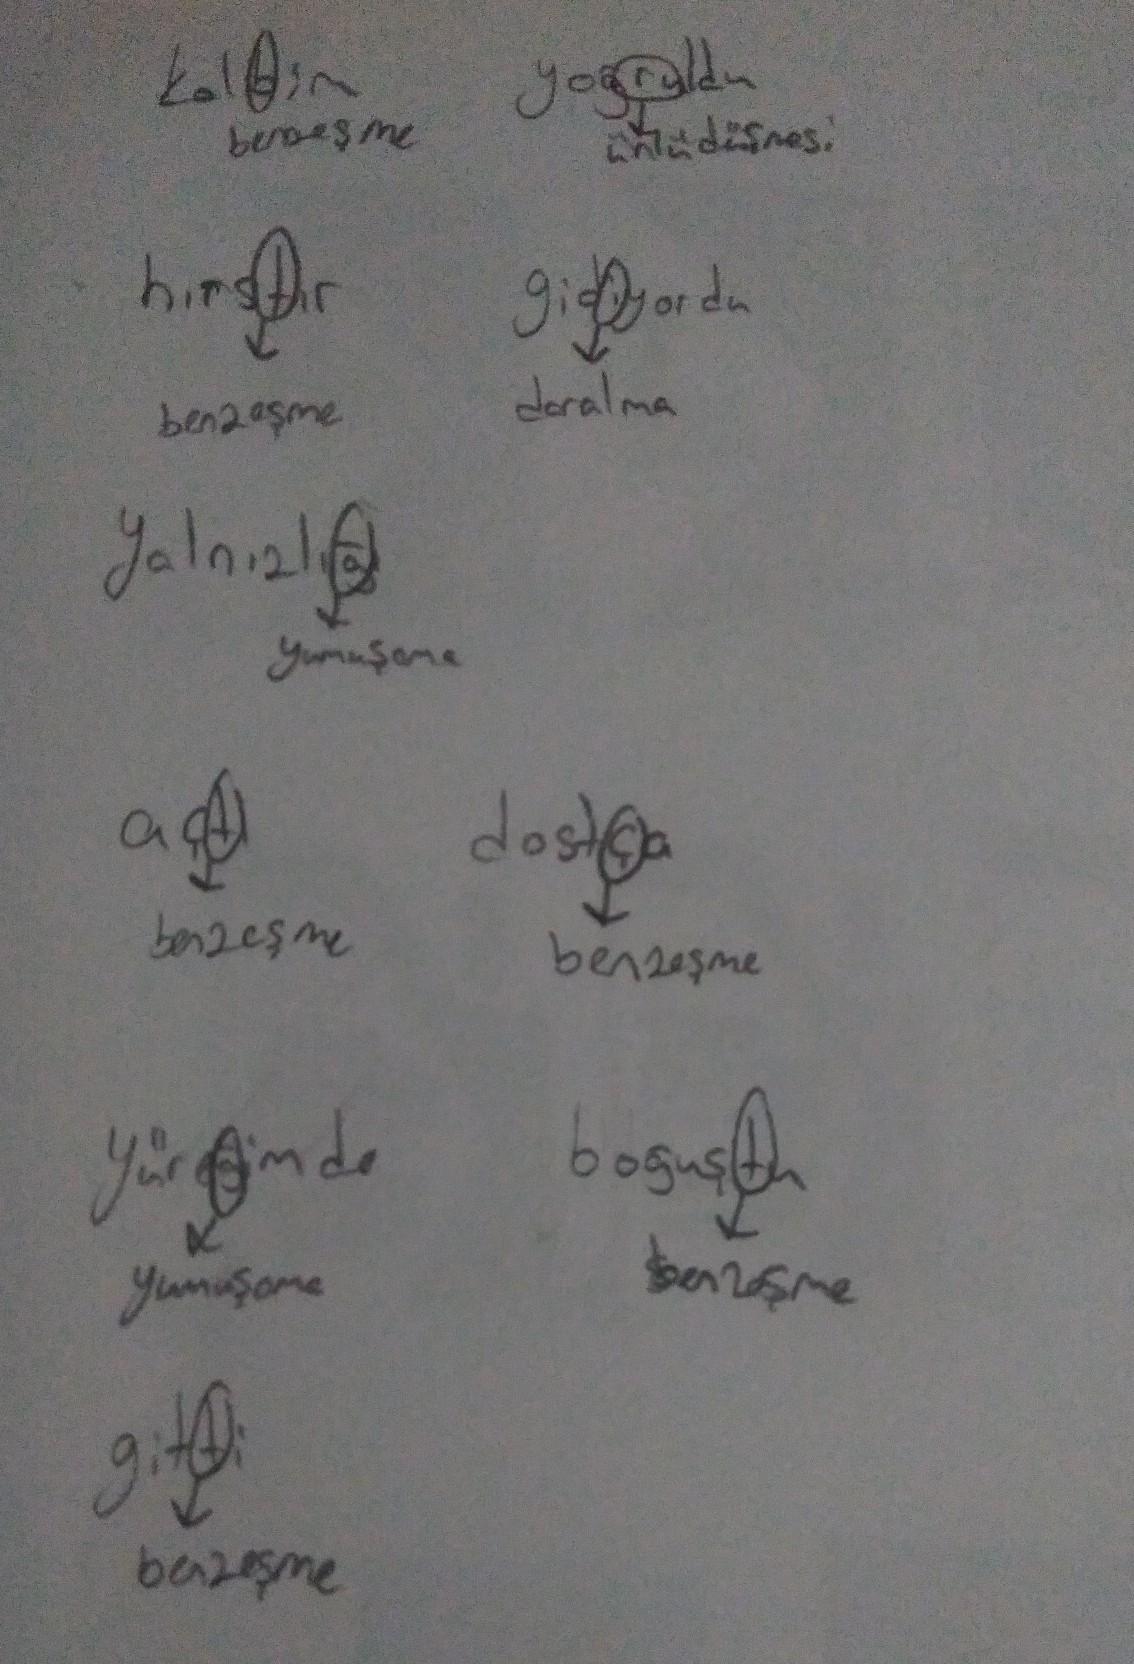 yoğruldu
benzeşme ünlü düşmesi
hırstır gidiyordu
benzeşme daralma
yalnızlığ
yumuşama
açtı dostça
benzeşme benzeşme
yüreğimde boğuştu
yumuşama benzeşme
gitti
benzeşme